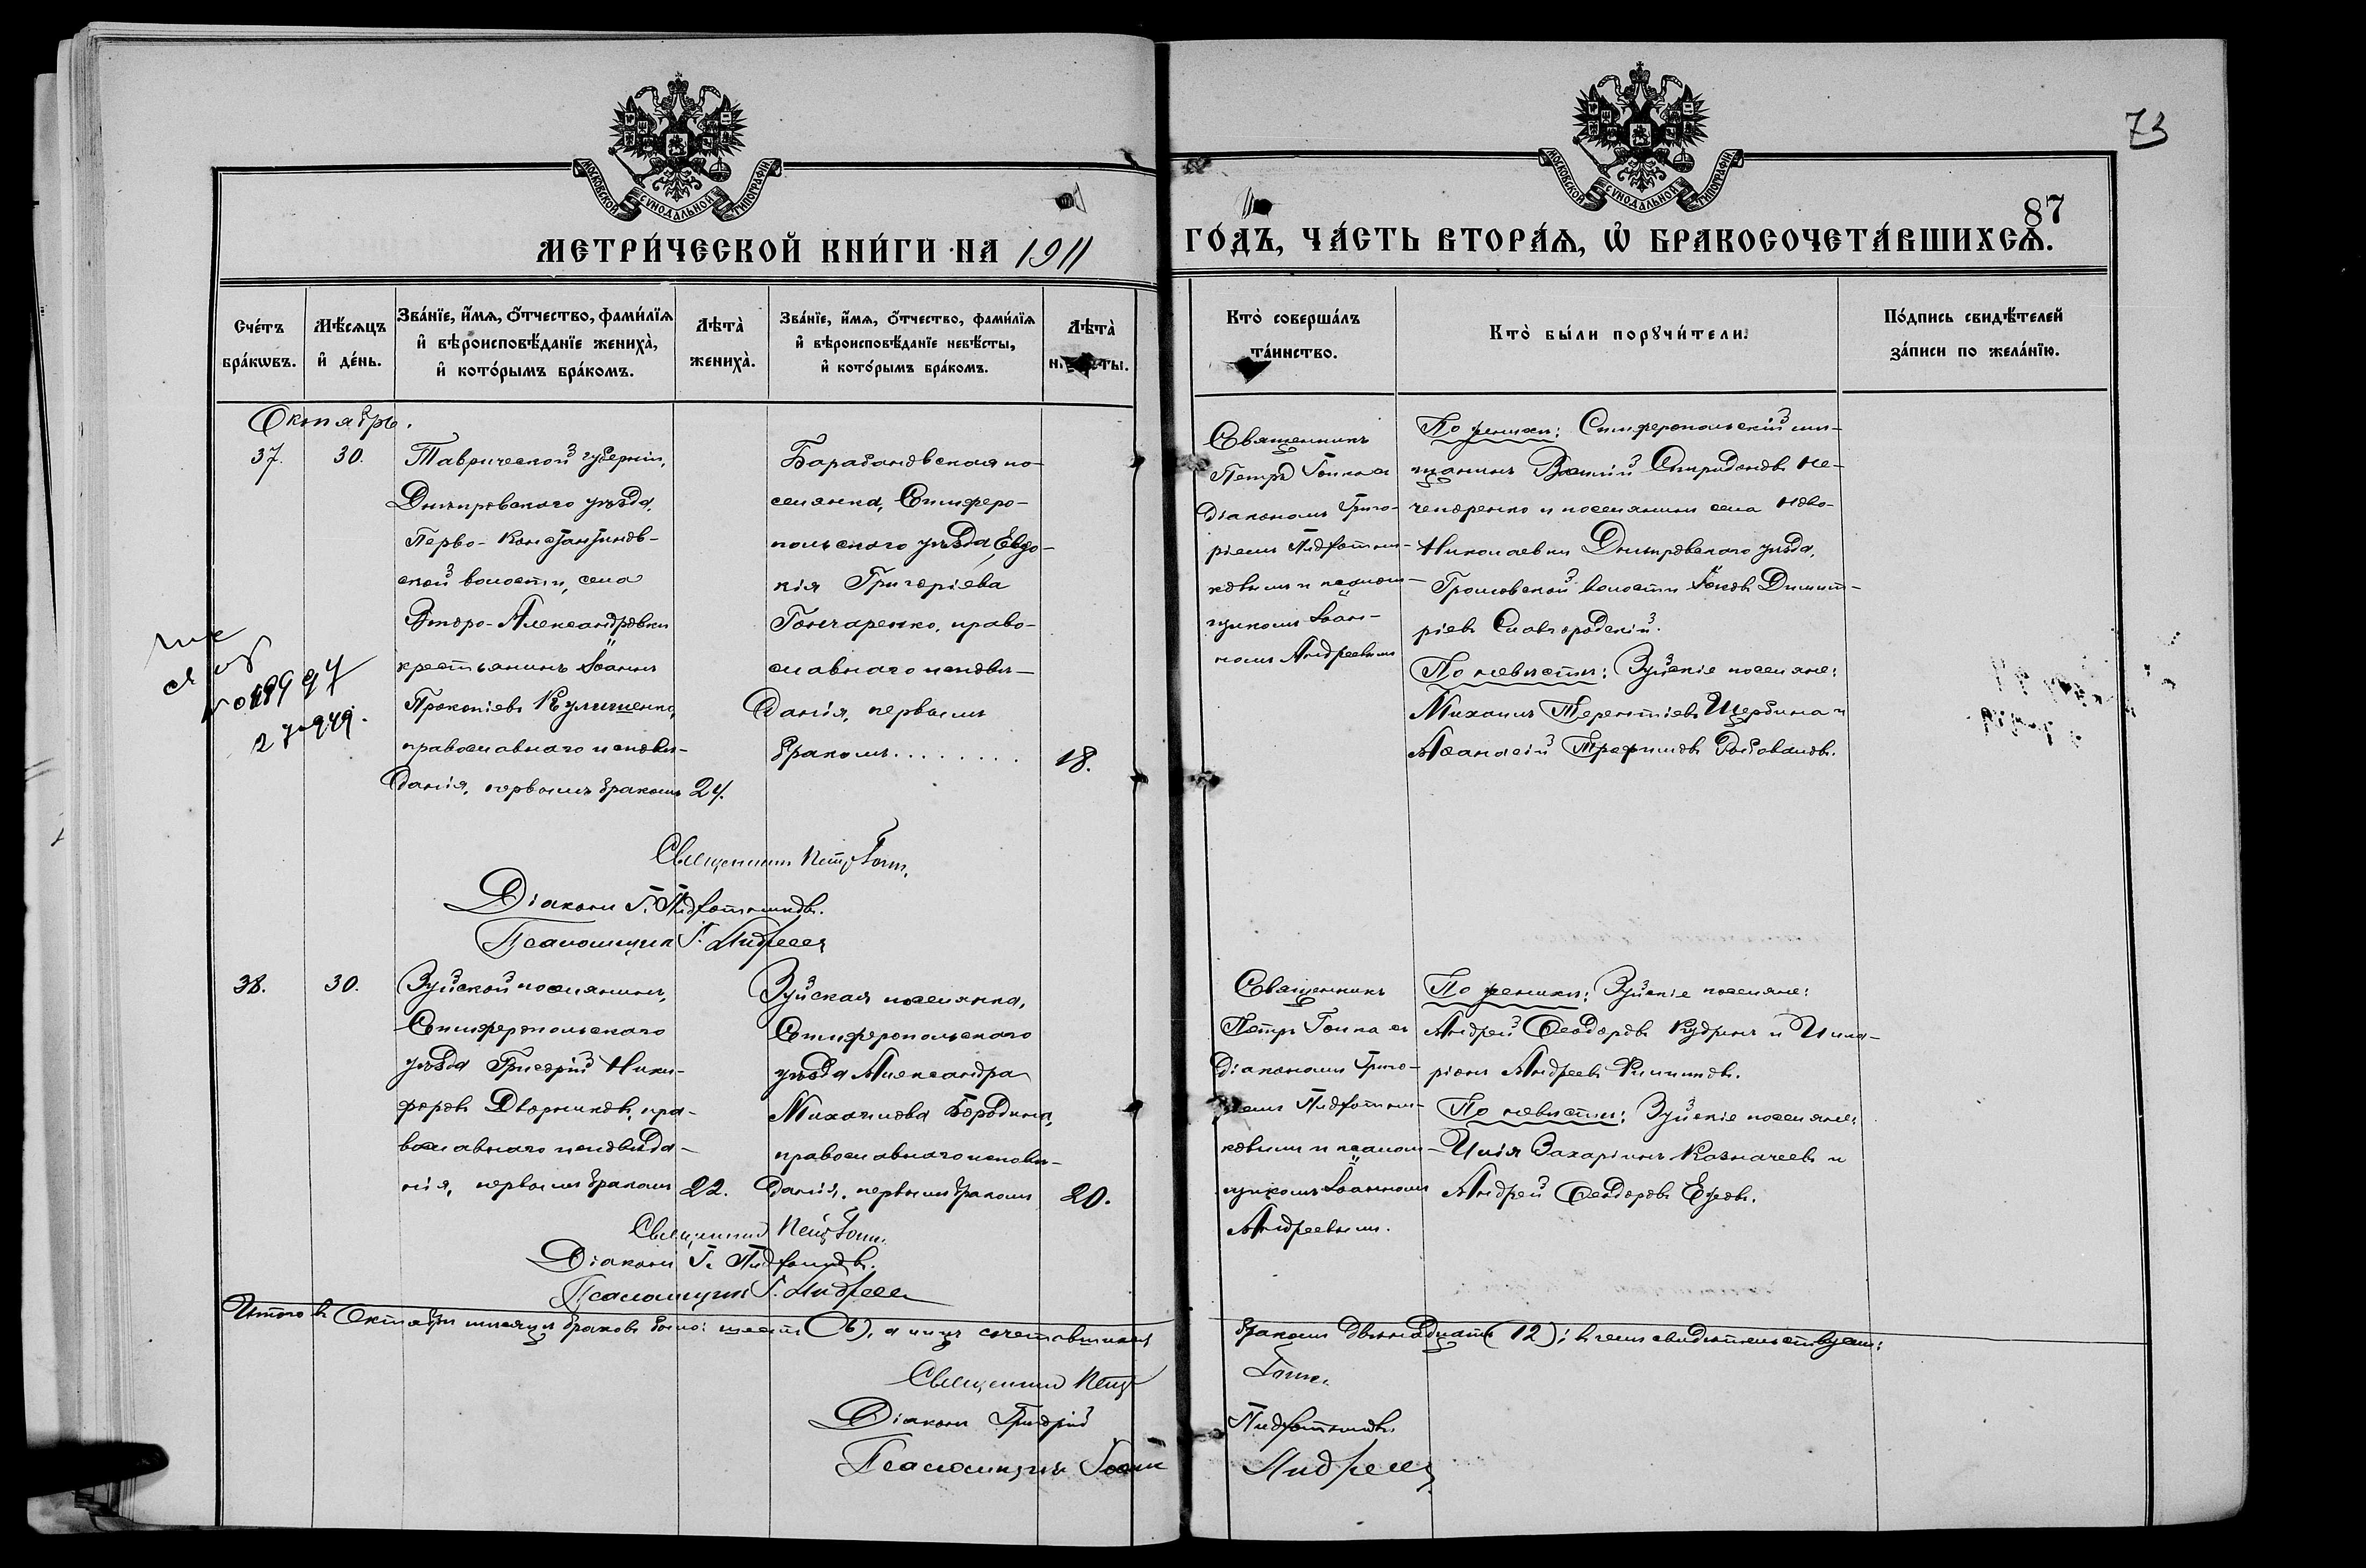 73
87
МОСКОВСКОЙ СѴНОДАЛЬНОЙ ТИПОГРАФІИ
МОСКОВСКОЙ СѴНОДАЛЬНОЙ ТИПОГРАФІИ
МЕТРИ́ЧЕСКОЙ КНИ́ГИ НА 1911
ГО́ДЪ, ЧА́СТЬ ВТОРА́Ѧ, Ѡ҆ БРАКОСОЧЕТА́ВШИХСѦ.
Сче́тъ бра́кѡвъ.
Мѣ́сѧцъ и҆ де́нь.
Зва́нїе, и҆́мѧ, ѻ҆́тчество, фами́лїѧ и҆ вѣроисповѣ́данїе жениха̀, и҆ кото́рымъ бра́комъ.
Лѣта̀ жениха̀.
Зва́нїе, и҆́мѧ, ѻ҆́тчество, фами́лїѧ и҆ вѣроисповѣ́данїе невѣ́сты, и҆ кото́рымъ бра́комъ.
Лѣта̀
Кто̀ соверша́лъ та́инство.
Кто̀ бы́ли порꙋчи́тели.
По́дпись свидѣ́телей за́писи по жела́нїю.
Октябрь.
37.
30.
Таврической губерніи,
Днѣпровскаго уѣзда,
Перво-Константинов-
ской волости, села
Второ-Александровки
крестьянинъ Іоаннъ
Прокопіевъ Кулишенко,
православнаго исповѣ-
данія, первымъ бракомъ
24.
Барабановская по-
селянка, Симферо-
польскаго уѣзда, Евдо-
кія Григоріева
Гончаренко, право-
славнаго исповѣ-
данія, первымъ
бракомъ........
18.
Священникъ
Петръ Гоина съ
діакономъ Григо-
ріемъ Пидфотни-
ковымъ и псалом-
щикомъ Іоан-
номъ Андреевымъ
По женихѣ: Симферопольскій мѣ-
щанинъ Василій Спиридоновъ Не-
чепоренко и поселянинъ села Ново-
Николаевки Днѣпровскаго уѣзда,
Громовской волости Іаковъ Димит-
ріевъ Славгородскій.
По невѣстѣ: Зуйскіе поселяне:
Михаилъ Терентіевъ Щербина и
Аѳанасій Трофимовъ
Священникъ Петръ Гоина.
Діаконъ Г. Пидфотниковъ.
Псаломщикъ І. Андреевъ
38.
30.
Зуйской поселянинъ,
Симферопольскаго
уѣзда Григорій Ники-
форовъ Дворниковъ, пра-
вославнаго исповѣда-
нія, первымъ бракомъ
22.
Зуйская поселянка,
Симферопольскаго
уѣзда Александра
Михаилова Бородина,
православнаго исповѣ-
данія, первымъ бракомъ
20.
Священникъ
Петръ Гоина съ
діакономъ Григо-
ріемъ Пидфотни-
ковымъ и псалом-
щикомъ Іоанномъ
Андреевымъ.
По женихѣ: Зуйскіе поселяне:
Андрей Ѳеодоровъ Кудринъ и Ила-
ріонъ Андреевъ
По невѣстѣ: Зуйскіе поселяне:
Илія Захаріинъ Казначеевъ и
Андрей Ѳеодоровъ
Священникъ Петръ Гоина.
Діаконъ Г. Пидфотниковъ.
Псаломщикъ І. Андреевъ
Итого въ Октябрѣ мѣсяцѣ браковъ было: шесть (6), а лицъ сочетавшихся
бракомъ двѣнадцать (12); въ чемъ свидѣтельствуемъ:
Священникъ Петръ Гоина.
Діаконъ Григорій Пидфотниковъ.
Псаломщикъ Іоаннъ Андреевъ